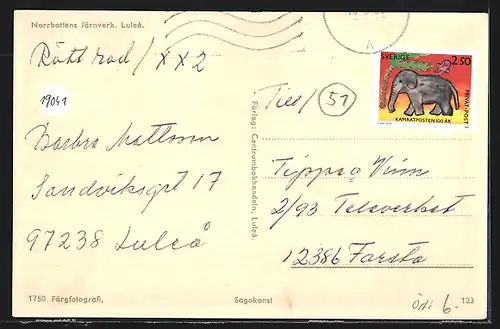 Norrbottens Järnverk. Luleå.
A
Rätt rad / x x 2
19041
Till / 51
SVERIGE 2.50
PRIVAT-POST
KAMRATPOSTEN 100 ÅR
Barbro Mattsson
Sandviksgt 17
97238 Luleå
Förlag: Centrumbokhandeln, Luleå.
Tippa o Vinn
2/93 Televerket
12386 Farsta
1750 Färgfotografi,
Sagokonst
6-
123